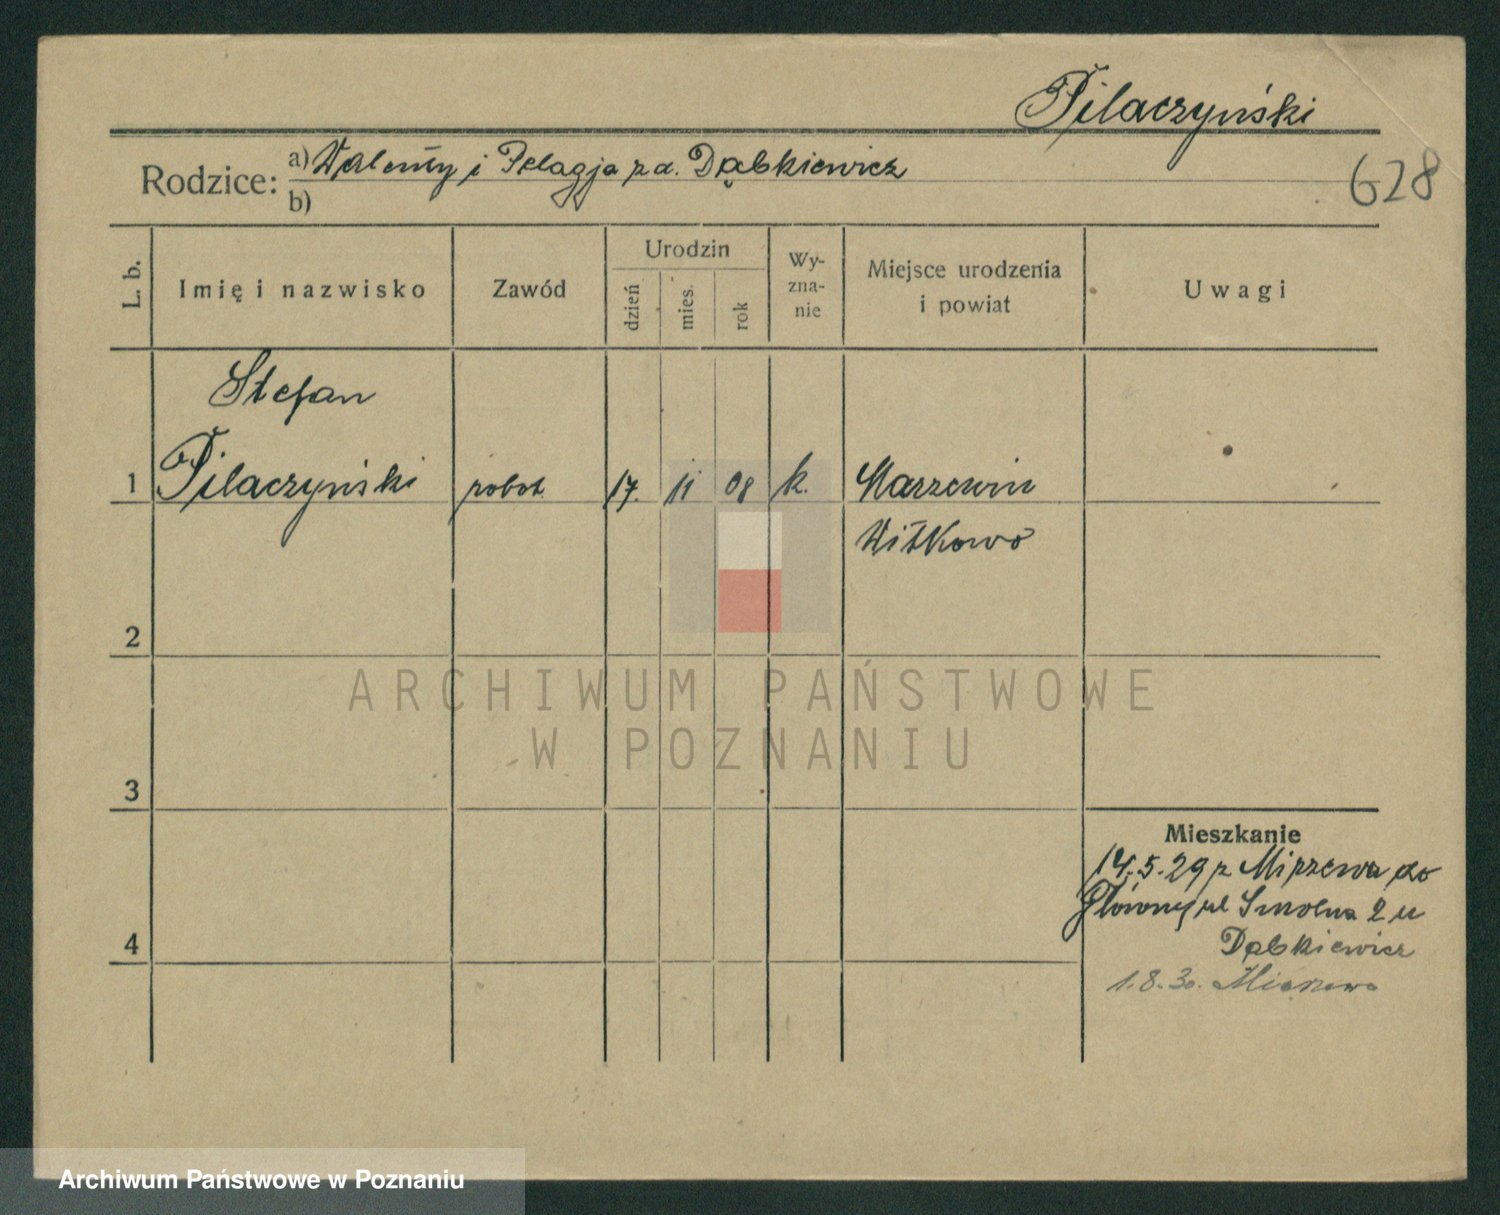 Pilaczyński
Rodzice: a) Walenty i Pelagja z d. Dąbkiewicz
b)
628
L. b.
Imię i nazwisko
Zawód
Urodzin
dzień
mies.
rok
Wy-
zna-
nie
Miejsce urodzenia
i powiat
Uwagi
Stefan
1 Pilaczyński robot. 17. 11 08 k. Marzenin
Witkowo
2
ARCHIWUM PAŃSTWOWE
W POZNANIU
3
Mieszkanie
14.5.29 z do
Główny ul Smolna 2 u
4
Dąbkiewicz
1.8.30.
Archiwum Państwowe w Poznaniu